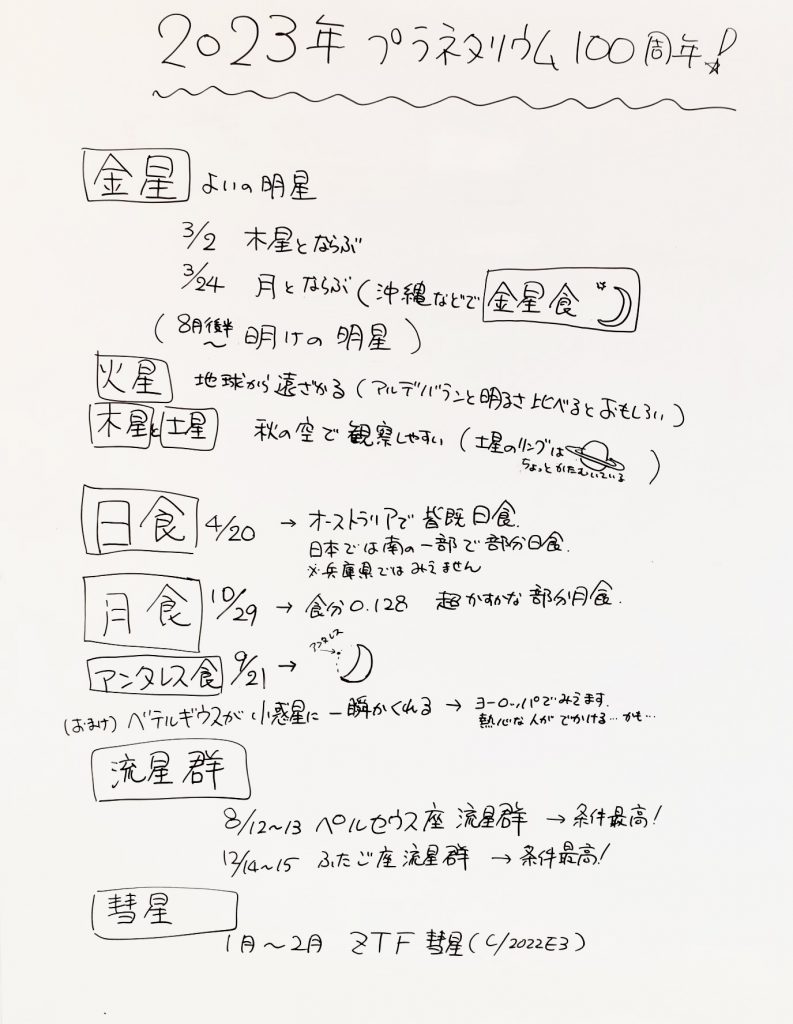 2023年 プラネタリウム100周年!
金星 よいの明星
3/2 木星とならぶ
3/24 月とならぶ(沖縄などで 金星食
(8月後半~ 明けの明星)
火星 地球から遠ざかる(アルデバランと明るさ比べるとおもしろい)
木星と土星 秋の空で観察しやすい(土星のリングは
ちょっとかたむいている)
日食 4/20 → オーストラリアで皆既日食.
日本では南の一部で部分日食.
※兵庫県ではみえません
月食 10/29 → 食分0.128 超かすかな部分月食.
アンタレス
アンタレス食 9/21 →
(おまけ) ベテルギウスが小惑星に一瞬かくれる → ヨーロッパでみえます.
熱心な人がでかける…かも…
流星群
8/12~13 ペルセウス座流星群 → 条件最高!
12/14~15 ふたご座流星群 → 条件最高!
彗星
1月~2月 ZTF彗星(C/2022E3)